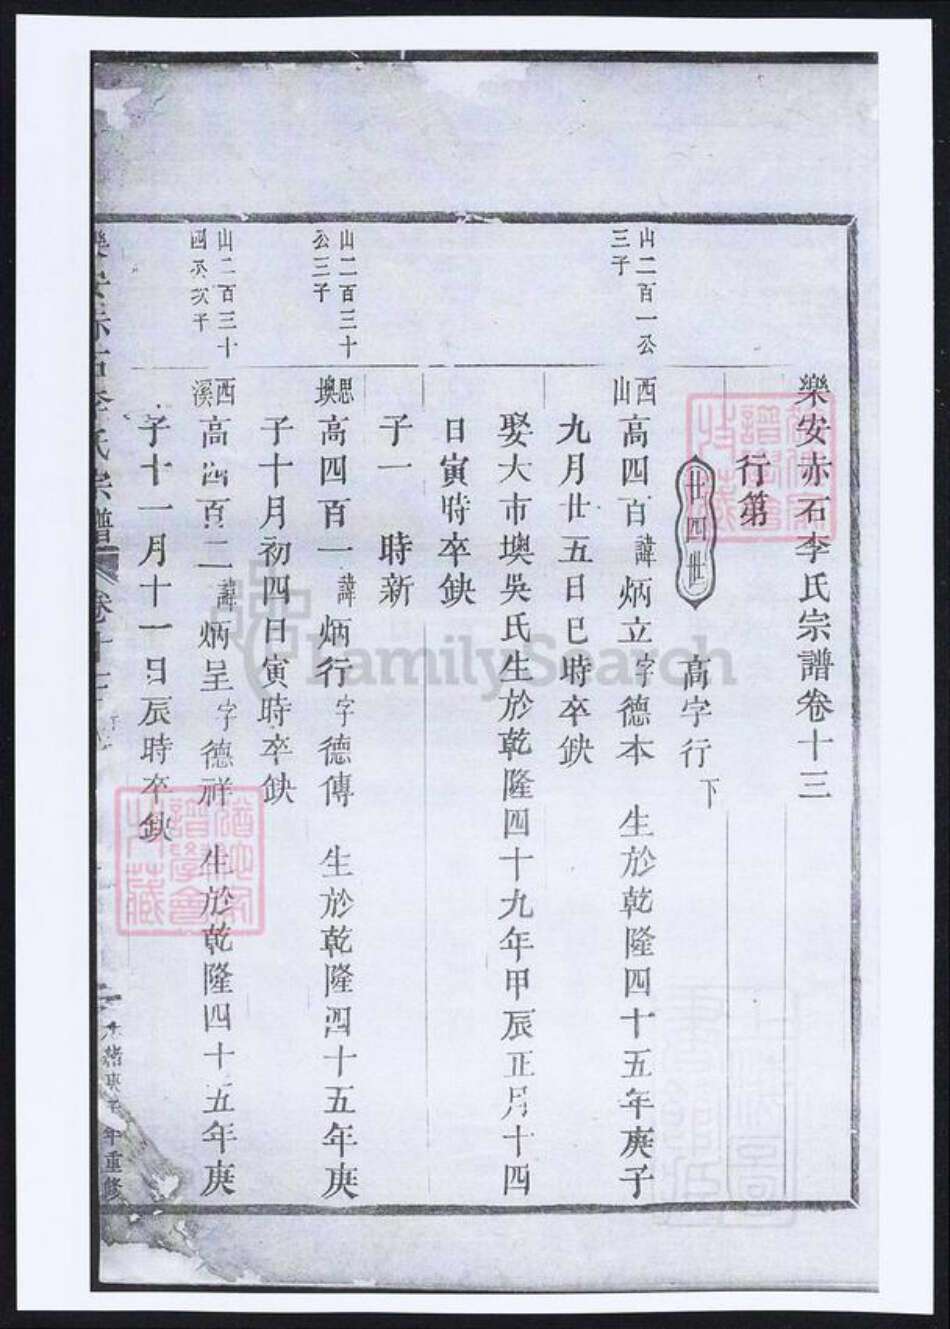 樂安赤石李氏宗譜卷十三
行第
廿四世
高字行 下
山二百一公
三子
西山
高四百諱炳立字德本 生於乾隆四十五年庚子
九月廿五日巳時卒缺
娶大市墺吳氏生於乾隆四十九年甲辰正月十四
日寅時卒缺
子一 時新
山二百三十
公三子
思墺
高四百一諱炳行字德傳 生於乾隆四十五年庚
子十月初四日寅時卒缺
山二百三十
次子
西溪
高四百二諱炳呈字德祥 生於乾隆四十五年庚
子十一月十一日辰時卒缺
樂安赤石李氏宗譜
卷十
緒庚子年重修
FamilySearch